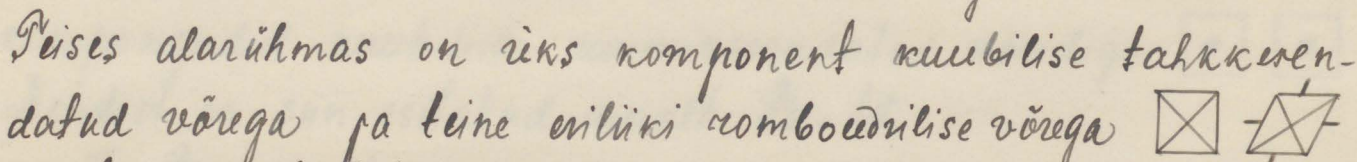 Teises alarühmas on üks komponent kuubilise tahkkesen-
datud võrega ja teine eriliiki romboedrilise võrega